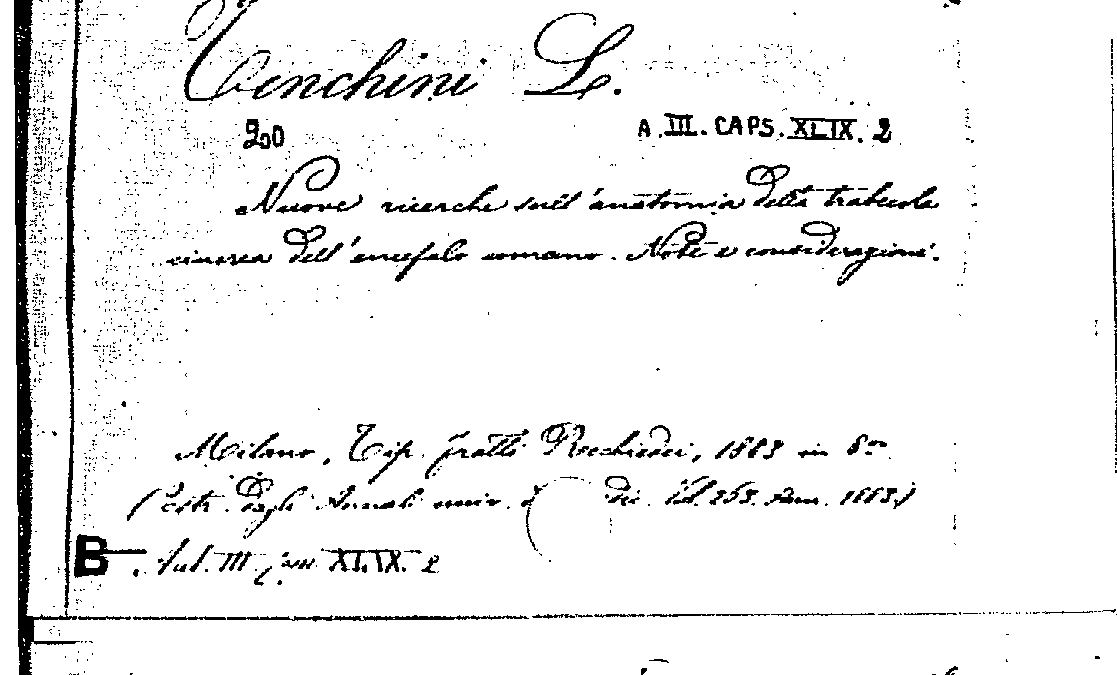 Tenchini L.
200 A. III. CAPS. XLIX. 2
Nuove ricerche sull'anatomia della trabecola
cinerea dell'encefalo umano. Note e considerazioni.
Milano, Tip. fratelli Rechiedei, 1883 in 8°
(Estr. dagli Annali univ. di Vol. 263. Ann. 1883.)
B
III XLIX. 2